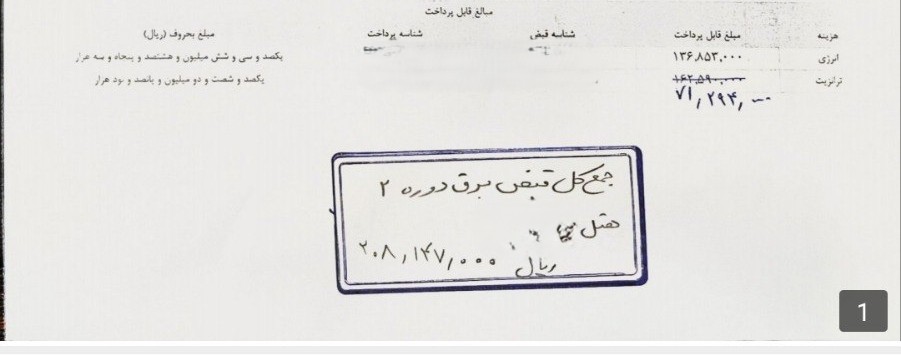 مبالغ قابل پرداخت
هزینه مبلغ قابل پرداخت شناسه قبض شناسه پرداخت مبلغ بحروف (ریال)
انرژی ۱۳۶,۸۵۳,۰۰۰ یکصد و سی و شش میلیون و هشتصد و پنجاه و سه هزار
ترانزیت ۱۶۲,۵۹۰,۰۰۰ یکصد و شصت و دو میلیون و پانصد و نود هزار
۷۱,۲۹۴,۰۰۰
جمع کل قبض برق دوره ۲
هتل
ریال ۲۰۸,۱۴۷,۰۰۰
1